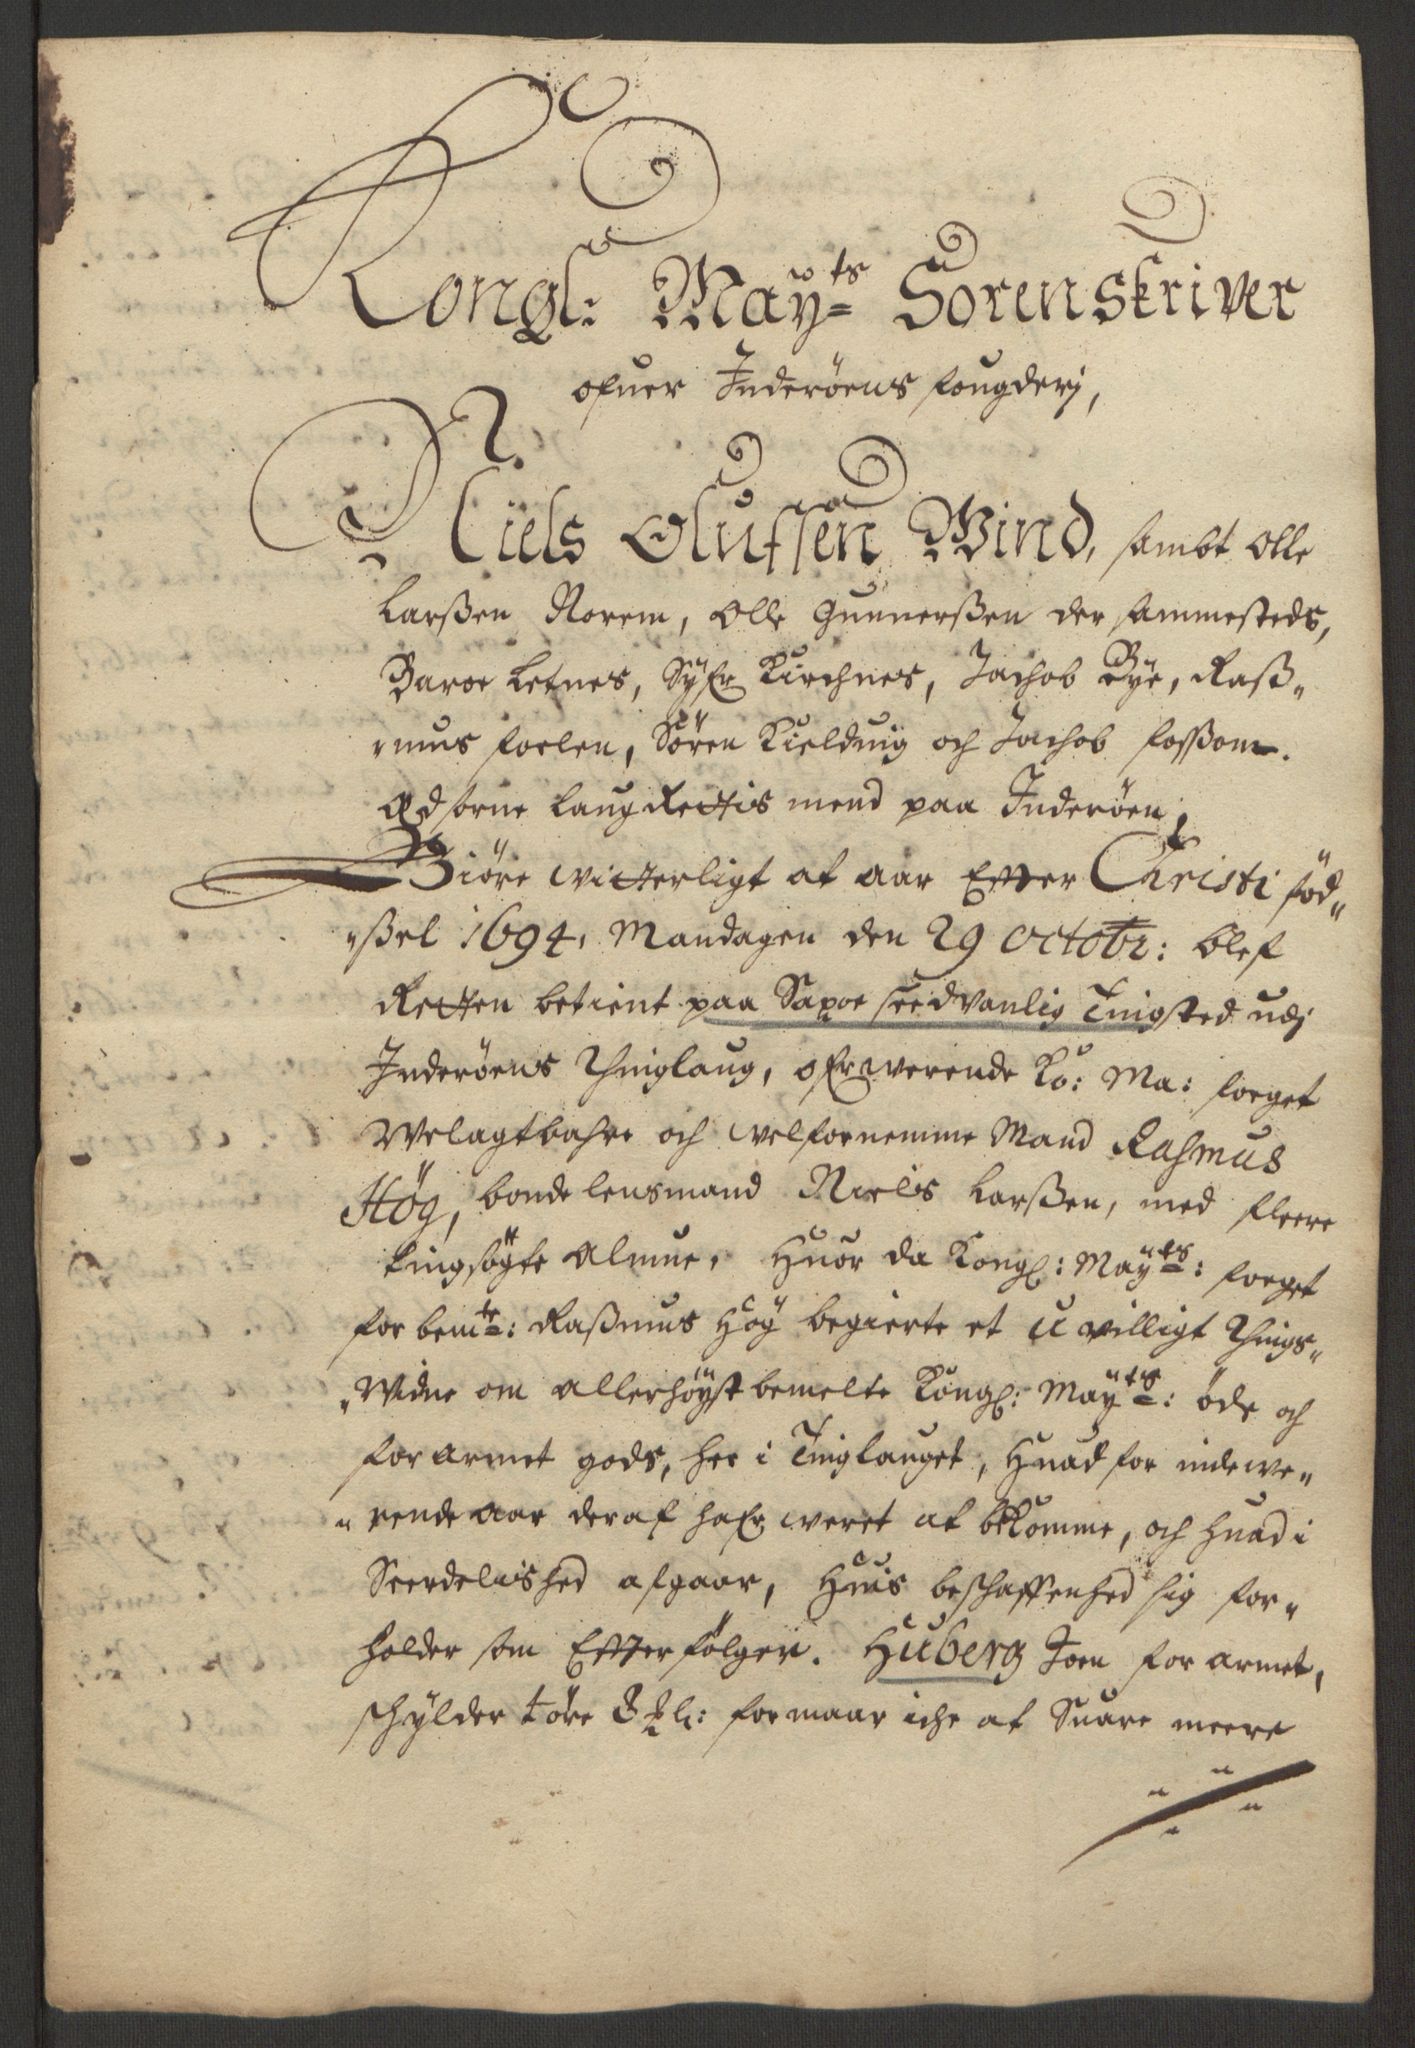 Kongl: Maÿts Sorenskriver
ofuer Inderöens fougderj,
Niels Olufsen Wind, sambt Olle
Larßen Norem, Olle Gunnerßen der sammesteds,
Baroe Letnes, Syfr Kirchnes, Jachob Bÿe, Raß„
„mus foelen, Sören Kielduig och Jachob foßom.
Edsorne LaugRettis mend paa Inderöen;
Giöre witterligt at aar Effter Christi föd„
„ßel 1694, Mandagen den 29 octobr: blef
Retten betient paa Saxoe seedvanlig Tingsted udj
Inderöens Thinglaug, ofrwerende Ko: Ma: foeget
Welagtbahre och welfornemme Mand Rasmus
Hög, bondelensmand Niels Larßen, med fleere
tingsögte Almue, Huor da Kongl: Maÿts: foeget
forbemte: Raßmus Hög begierte et uvilligt Things„
„Widne om allerhöÿstbemelte Kongl: Maÿts: öde och
forarmet gods, her i Tinglauget, Huad for indewe„
„rende aar deraf hafr weret at bekomme, och huad i
Seerdelished afgaar, Huis beschaffenhed sig for„
holder som Effterfölger. Huberg Joen forarmet,
schÿlder töre 8 : formaar iche at Suare meere